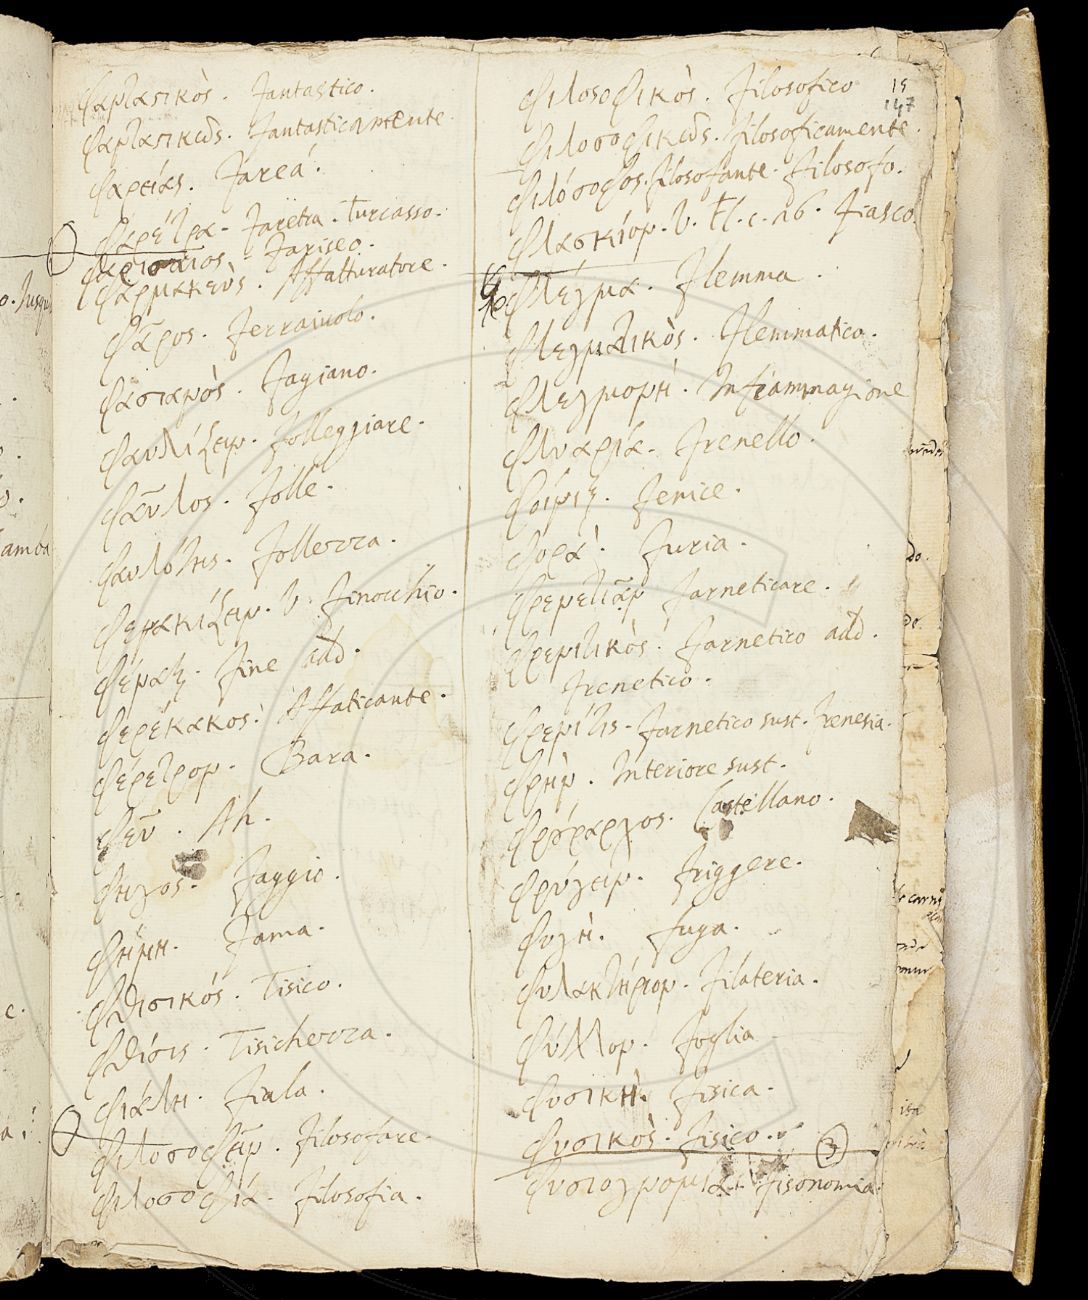 Φανταστικὸς. Fantastico.
Φανταστικῶς. Fantasticamente.
Φαρείας. Fareá.
Φαρέτρα. Faretra. Turcasso.
Φαρισαῖος. Fariseo.
Φαρμακεὺς. Affatturatore.
Φᾶρος. Ferraiuolo.
Φασιανὸς. Fagiano.
Φαυλίζειν. Folleggiare.
Φαῦλος. Folle.
Φαυλότης. Follezza.
Φενακίζειν. V. Finocchio.
Φέναξ. Fine add.
Φερέκακος. Affaticante.
Φέρετρον. Bara.
Φεῦ. Ah.
Φηγος. Faggio.
Φήμη. Fama.
Φθισικός. Tisico.
Φθίσις. Tisichezza.
Φιάλη. Fiala.
Φιλοσοφεῖν. Filosofare.
Φιλοσοφία. Filosofia.
15
147
Φιλοσοφικὸς. Filosofico
Φιλοσοφικῶς. Filosoficamente.
Φιλόσοφος. filosofante. Filosofo.
Φλασκίον. V. Fl. c. 26. Fiasco.
Φλέγμα. Flemma.
Φλεγματικὸς. Flemmatico.
Φλεγμονή. Infiammagione
Φλυαρία. Frenello.
Φοίνιξ. Fenice.
Φορά. Furia.
Φρενετιᾶν Farneticare.
Φρενιτικὸς. Farnetico add.
Frenetico.
Φρενίτις. Farnetico sust. Frenesia.
Φρὴν. Interiore sust.
Φρούραρχος. Castellano.
Φρύγειν. Friggere.
Φυγή. fuga.
Φυλακτήριον. Filateria.
Φύλλον. Foglia
Φυσικὴ. Fisica.
Φυσικὸς. Fisico. 3
Φυσιογνομία. fisonomia.